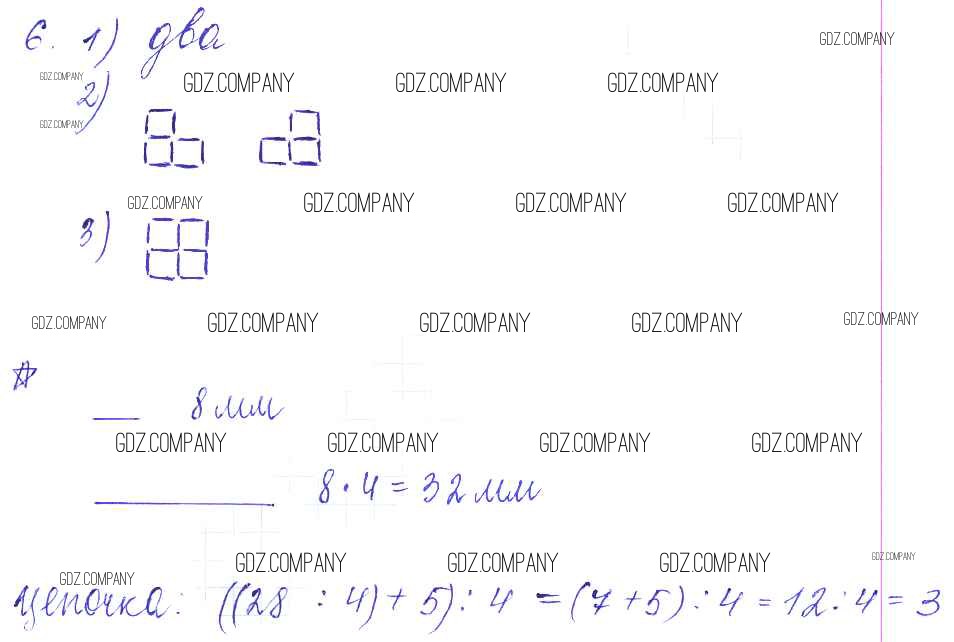 6. 1) два
GDZ.COMPANY
GDZ.COMPANY GDZ.COMPANY GDZ.COMPANY GDZ.COMPANY
2)
GDZ.COMPANY
GDZ.COMPANY GDZ.COMPANY GDZ.COMPANY GDZ.COMPANY
3)
GDZ.COMPANY GDZ.COMPANY GDZ.COMPANY GDZ.COMPANY GDZ.COMPANY
8 мм
GDZ.COMPANY GDZ.COMPANY GDZ.COMPANY GDZ.COMPANY
8 · 4 = 32 мм
GDZ.COMPANY GDZ.COMPANY GDZ.COMPANY GDZ.COMPANY
GDZ.COMPANY
Цепочка: ((28 : 4) + 5) : 4 = (7 + 5) : 4 = 12 : 4 = 3